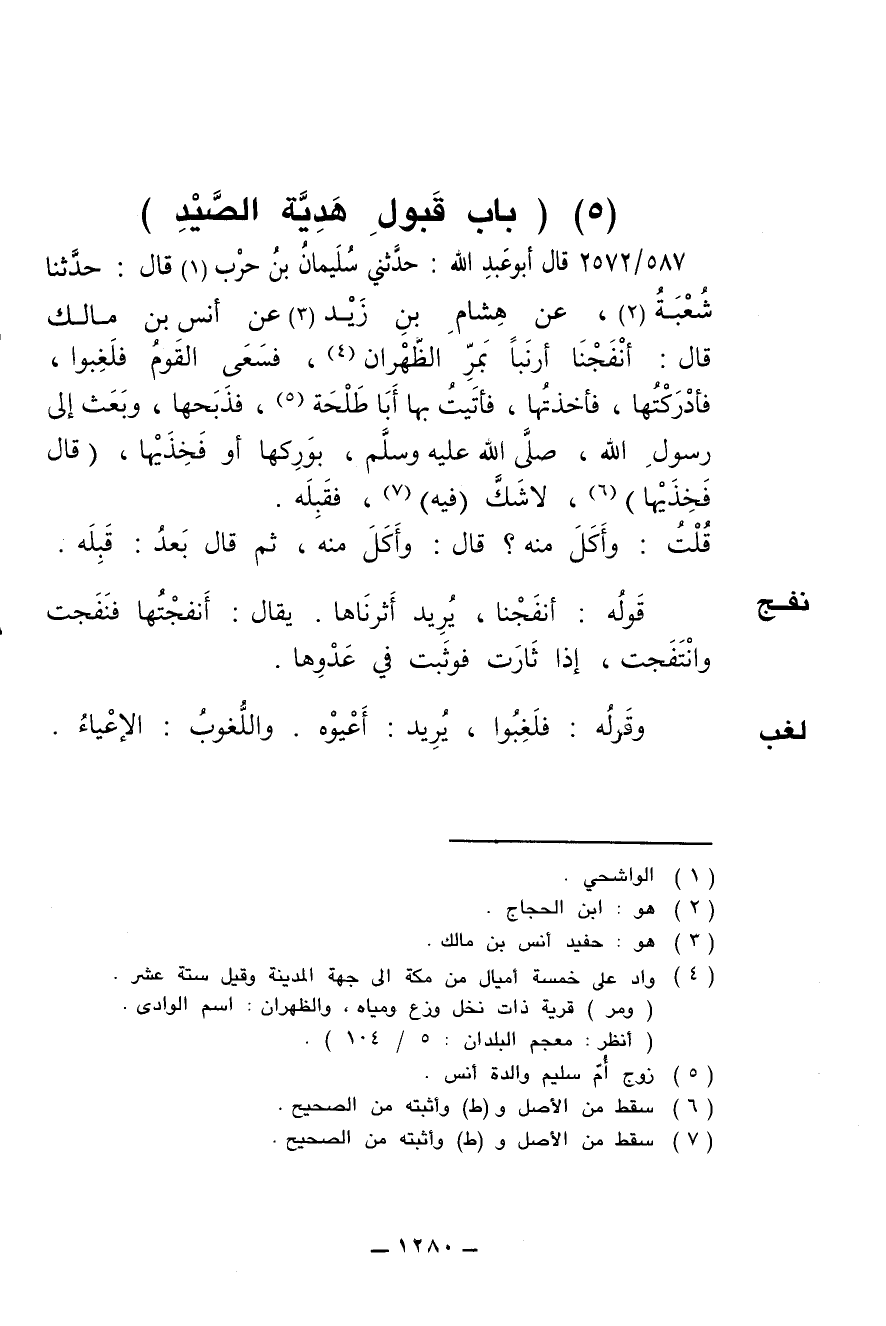 (٥) ( باب قَبولِ هَدِيَّة الصَّيْدِ )
٢٥٧٢/٥٨٧ قال أبوعَبدِ الله : حدَّثني سُلَيمانُ بنُ حرْب (١) قال : حدَّثنا
شُعْبَـةُ (٢) ، عن هِشامِ بنِ زَيْـد (٣) عن أنس بن مـالـك
قال : أنْفَجْنَا أرنَباً بَمرِّ الظَّهْران (٤) ، فسَعَى القَومُ فلَغِبوا ،
فأدْرَكْتُها ، فأخذتُها ، فأتَيتُ بها أَبَا طَلْحَة (٥) ، فذَبَحها ، وبَعَث إلى
رسولِ الله ، صلَّى الله عليه وسلَّم ، بوَرِكها أو فَخِذَيْها ، ( قال
فَخِذَيْها ) (٦) ، لاشَكَّ (فيه) (٧) ، فقَبِلَه .
قُلْتُ : وأَكَلَ منه ؟ قال : وأَكَلَ منه ، ثم قال بَعدُ : قَبِلَه .
نفـج قَولُه : أنفَجْنا ، يُرِيد أَثرنَاها . يقال : أَنفجْتُها فنَفَجت
وانْتَفَجت ، إذا ثَارَت فوثَبت في عَدْوِها .
لغب وقَرلُه : فلَغِبُوا ، يُرِيد : أَعْيوْه . واللُّغوبُ : الإعْياءُ .
(١) الواشحي .
(٢) هو : ابن الحجاج .
(٣) هو : حفيد أنس بن مالك .
(٤) واد على خمسة أميال من مكة الى جهة المدينة وقيل ستة عشر .
( ومر ) قرية ذات نخل وزع ومياه ، والظهران : اسم الوادى .
( أنظر : معجم البلدان : ٥ / ١٠٤ ) .
(٥) زوج أُمّ سليم والدة أنس .
(٦) سقط من الأصل و (ط) وأثبته من الصحيح .
(٧) سقط من الأصل و (ط) وأثبته من الصحيح .
ــ ١٢٨٠ ــ